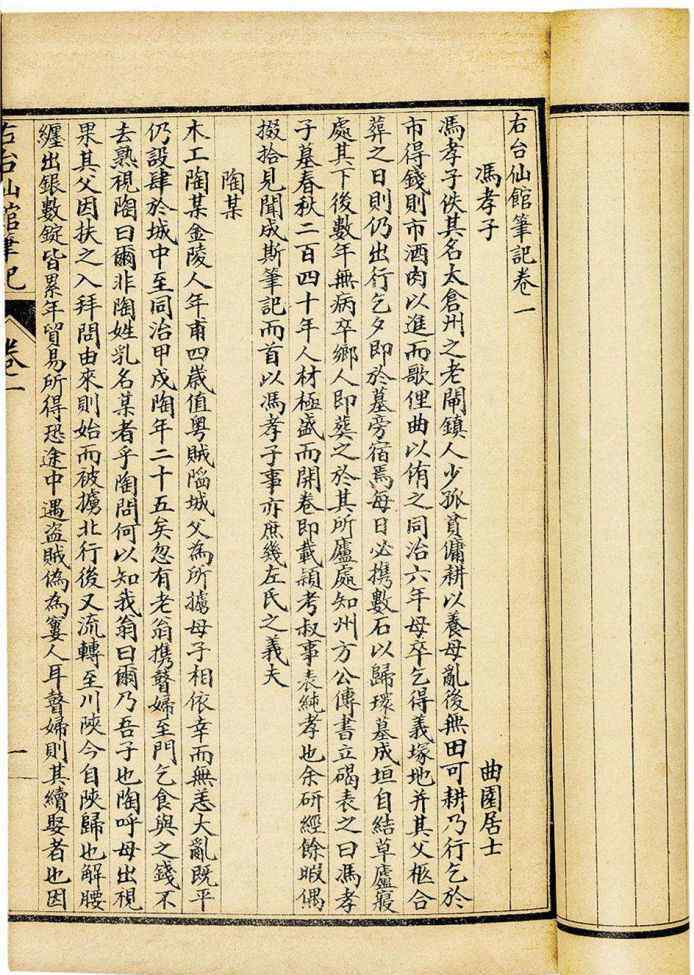 右台仙館筆記卷一
馮孝子　曲園居士
馮孝子佚其名太倉州之老閘鎮人少孤貧傭耕以養母亂後無田可耕乃行乞於
市得錢則市酒肉以進而歌俚曲以侑之同治六年母卒乞得義塚地并其父柩合
葬之日則仍出行乞夕即於墓旁宿焉每日必携數石以歸環墓成垣自結草廬寢
處其下後數年無病卒鄉人即葬之於其所廬處知州方公傳書立碣表之曰馮孝
子墓春秋二百四十年人材極盛而開卷即載潁考叔事表純孝也余研經餘暇偶
掇拾見聞成斯筆記而首以馮孝子事亦庶幾左氏之義夫
陶某
木工陶某金陵人年甫四歲值粵賊陷城父為所擄母子相依幸而無恙大亂既平
仍設肆於城中至同治甲戌陶年二十五矣忽有老翁携瞽婦至門乞食與之錢不
去熟視陶曰爾非陶姓乳名某者乎陶問何以知我翁曰爾乃吾子也陶呼母出視
果其父因扶之入拜問由來則始而被擄北行後又流轉至川陝今自陝歸也解腰
纏出銀數錠皆累年貿易所得恐途中遇盜賊偽為窶人耳瞽婦則其續娶者也因
右台仙館筆記　卷一　一